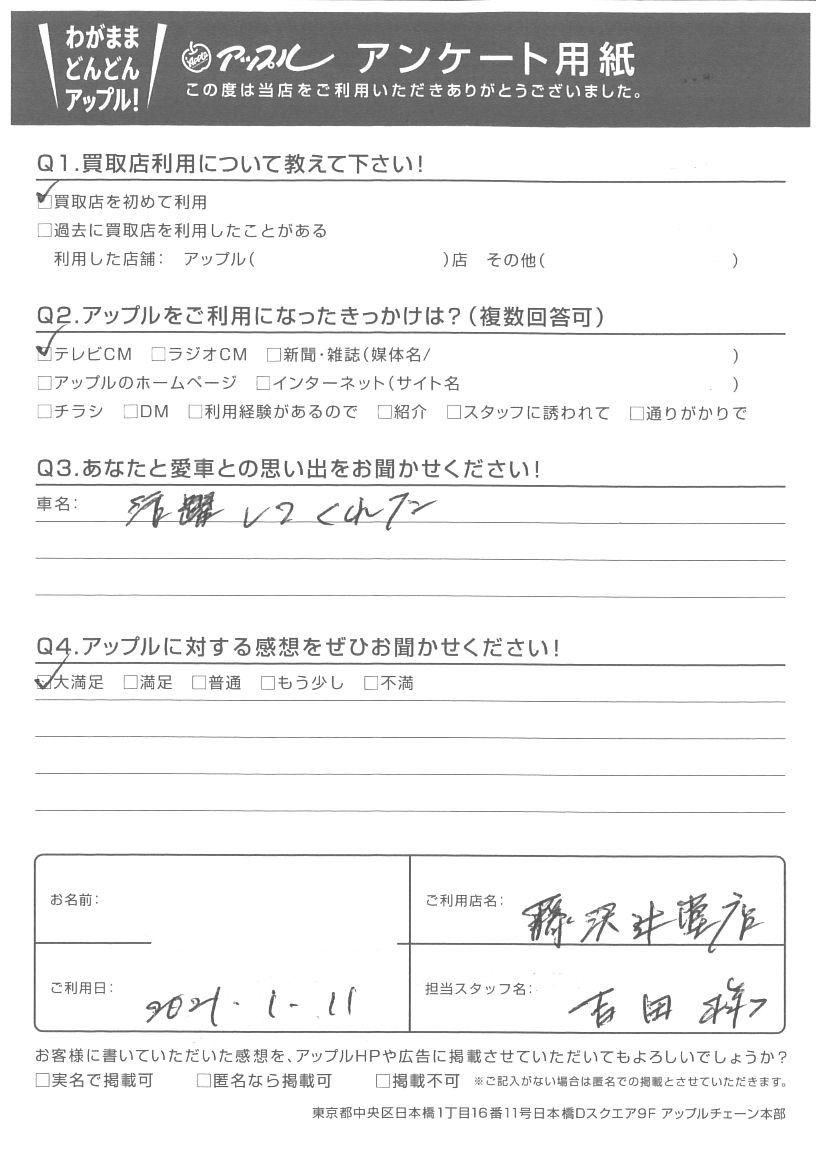 わがまま
どんどん
アップル!
Apple アップル アンケート用紙
この度は当店をご利用いただきありがとうございました。
Q1.買取店利用について教えて下さい!
☑買取店を初めて利用
□過去に買取店を利用したことがある
利用した店舗: アップル( )店 その他( )
Q2.アップルをご利用になったきっかけは?(複数回答可)
☑テレビCM □ラジオCM □新聞・雑誌(媒体名/ )
□アップルのホームページ □インターネット(サイト名 )
□チラシ □DM □利用経験があるので □紹介 □スタッフに誘われて □通りがかりで
Q3.あなたと愛車との思い出をお聞かせください!
車名: 活躍してくれた
Q4.アップルに対する感想をぜひお聞かせください!
☑大満足 □満足 □普通 □もう少し □不満
お名前:
ご利用店名: 藤沢辻堂店
ご利用日: 2021.1-11
担当スタッフ名: 吉田
お客様に書いていただいた感想を、アップルHPや広告に掲載させていただいてもよろしいでしょうか?
□実名で掲載可 □匿名なら掲載可 □掲載不可 ※ご記入がない場合は匿名での掲載とさせていただきます。
東京都中央区日本橋1丁目16番11号日本橋Dスクエア9F アップルチェーン本部